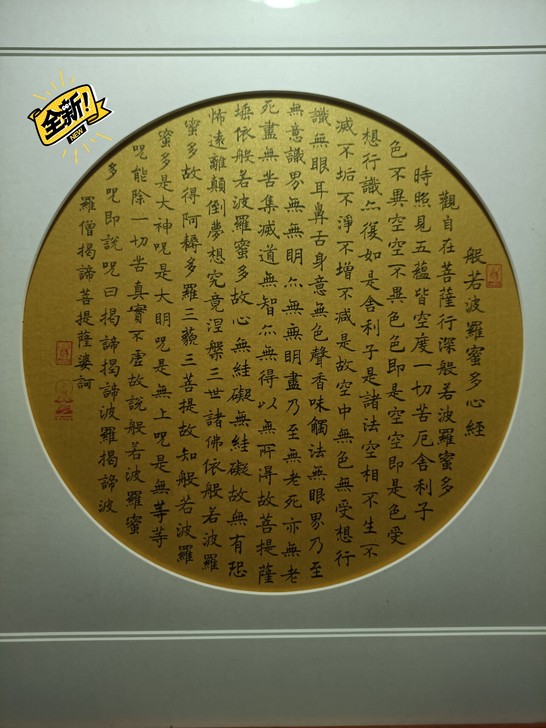 全新!
NEW
般若波羅蜜多心經
觀自在菩薩行深般若波羅蜜多
時照見五蘊皆空度一切苦厄舍利子
色不異空空不異色色即是空空即是色受
想行識亦復如是舍利子是諸法空相不生不
滅不垢不淨不增不減是故空中無色無受想行
識無眼耳鼻舌身意無色聲香味觸法無眼界乃至
無意識界無無明亦無無明盡乃至無老死亦無老
死盡無苦集滅道無智亦無得以無所得故菩提薩
埵依般若波羅蜜多故心無絓礙無絓礙故無有恐
怖遠離顛倒夢想究竟涅槃三世諸佛依般若波羅
蜜多故得阿耨多羅三藐三菩提故知般若波羅
蜜多是大神呪是大明呪是無上呪是無等等
呪能除一切苦真實不虛故說般若波羅蜜
多呪即說呪曰揭諦揭諦波羅揭諦波
羅僧揭諦菩提薩婆訶